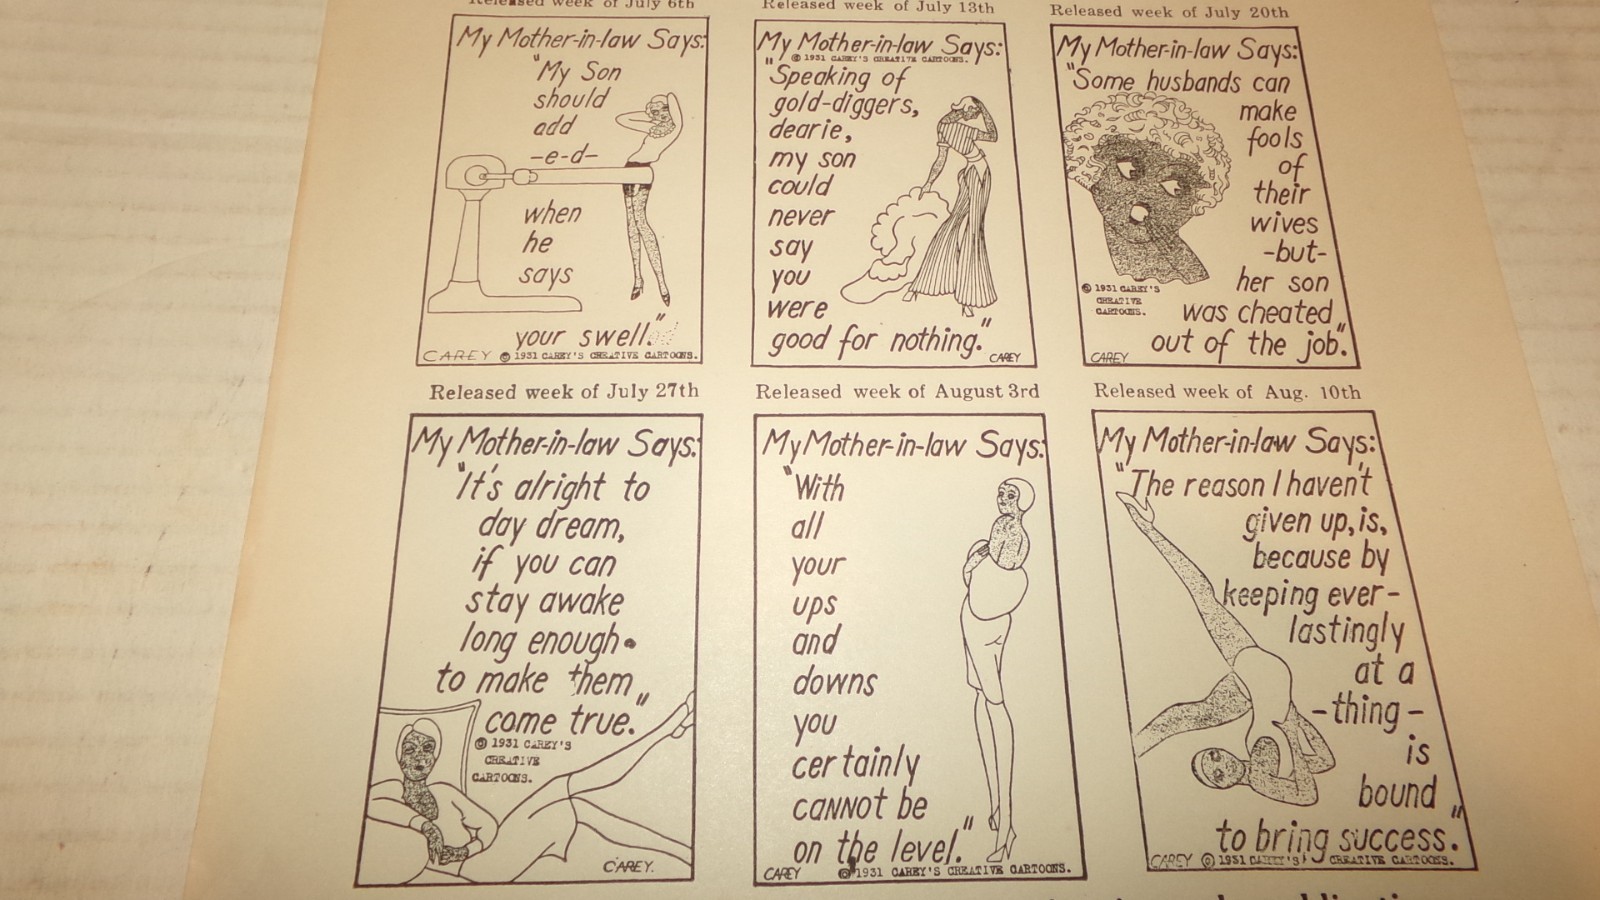 Released week of July 6th
My Mother-in-law Says:
"My Son
should
add
-e-d-
when
he
says
your swell."
CAREY © 1931 CAREY'S CREATIVE CARTOONS.
Released week of July 13th
My Mother-in-law Says:
© 1931 CAREY'S CREATIVE CARTOONS.
"Speaking of
gold-diggers,
dearie,
my son
could
never
say
you
were
good for nothing."
CAREY
Released week of July 20th
My Mother-in-law Says:
"Some husbands can
make
fools
of
their
wives
-but-
her son
was cheated
out of the job."
© 1931 CAREY'S
CREATIVE
CARTOONS.
CAREY
Released week of July 27th
My Mother-in-law Says:
"It's alright to
day dream,
if you can
stay awake
long enough
to make them
come true."
© 1931 CAREY'S
CREATIVE
CARTOONS.
CAREY.
Released week of August 3rd
My Mother-in-law Says:
"With
all
your
ups
and
downs
you
certainly
CANNOT be
on the level."
CAREY © 1931 CAREY'S CREATIVE CARTOONS.
Released week of Aug. 10th
My Mother-in-law Says:
"The reason I haven't
given up, is,
because by
keeping ever-
lastingly
at a
-thing-
is
bound
to bring success."
CAREY © 1931 CAREY'S CREATIVE CARTOONS.